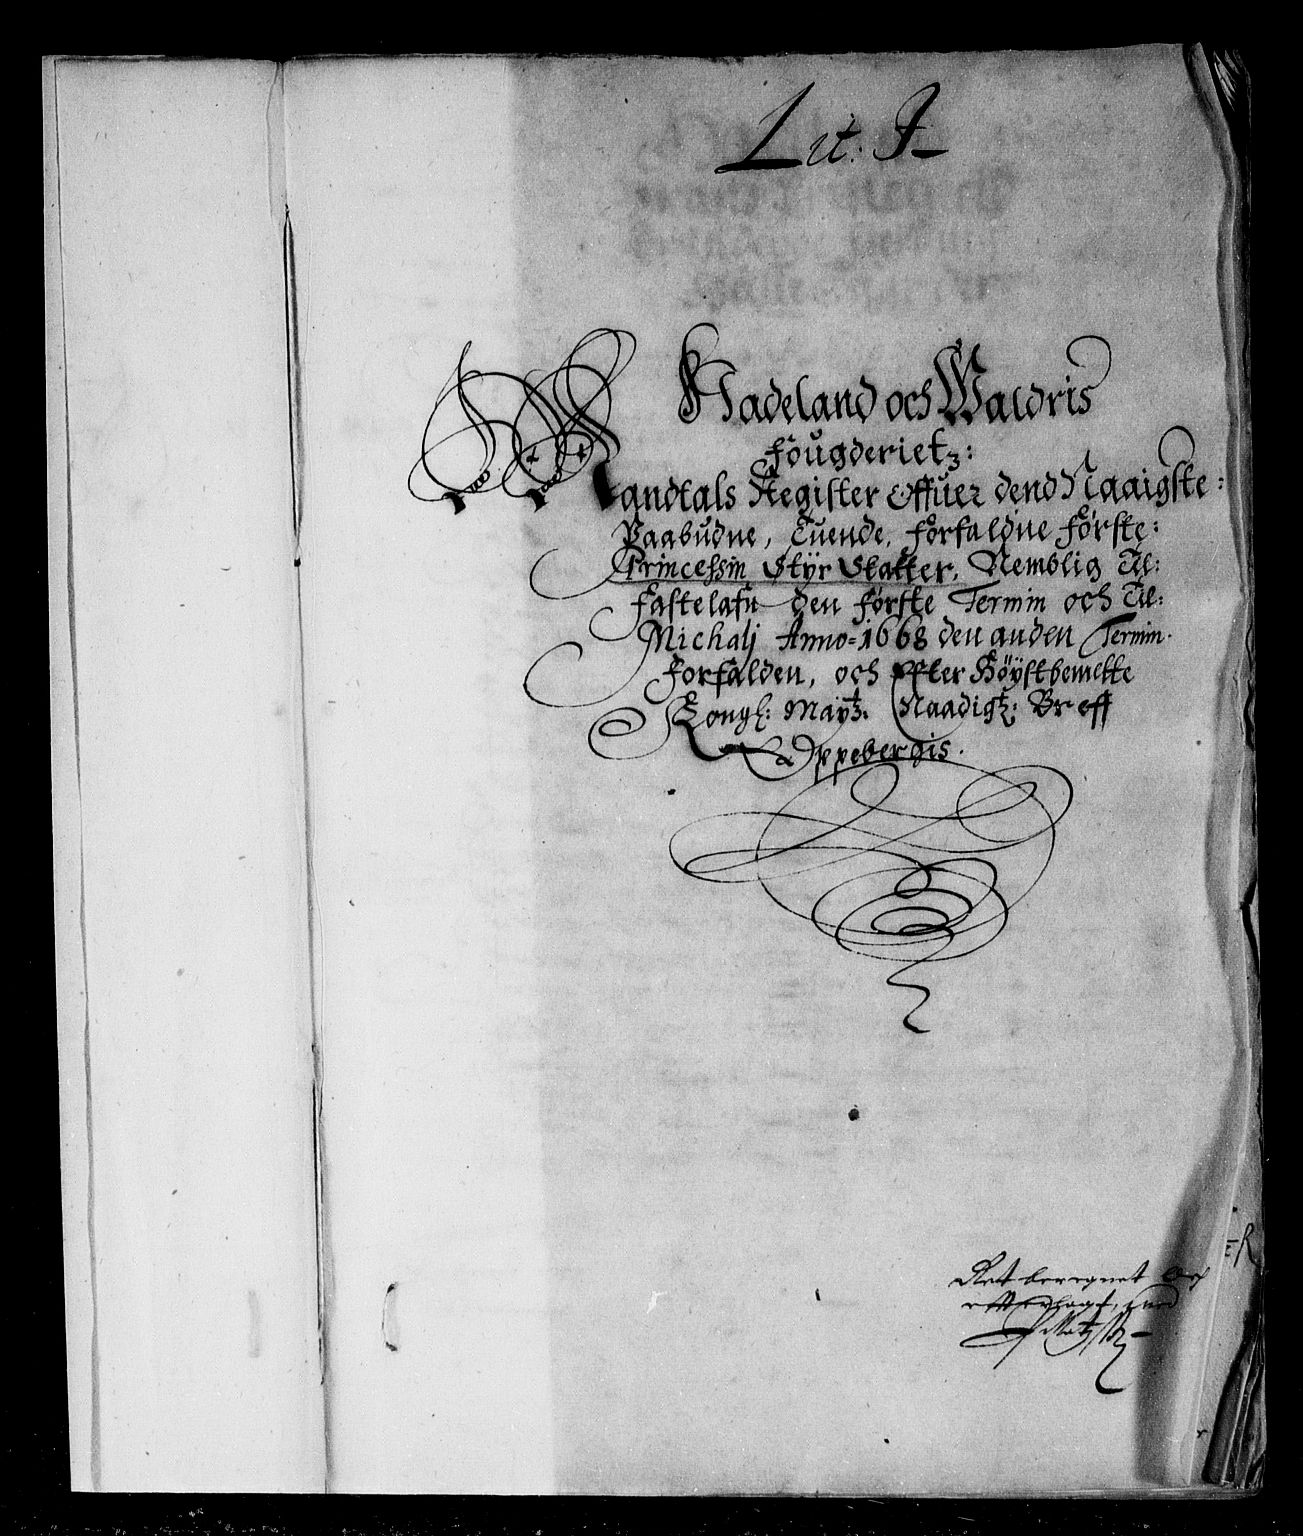 Lit: J
Hadeland och Waldris
fougderietz:
Mandtals Register Offuer dend Naaigste:
Paabudne, Tuende, forfaldne förste:
Princessin Styr Skatter, Nemblig Til:
fastelafn den förste Termin och Til:
Michalj Anno=1668 den anden Termin.
forfalden, och effter Höystbemelte
Kongl: Maytz. Naadigt: Breff
Oppebergis.
Ret beregnet och